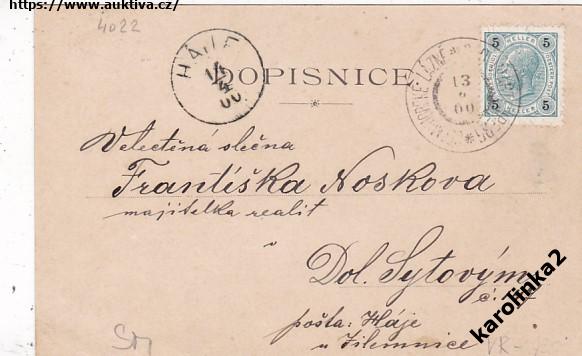 https://www.auktiva.cz/
4022
HÁJE
14
4
00
DOPISNICE
13
00
5 5
HELLER HELLER
5 5
Velectěná slečna
Františka Noskova
majitelka realit
Dol. Sytovým
č.
pošta: Háje
u Jilemnice
karolinka2